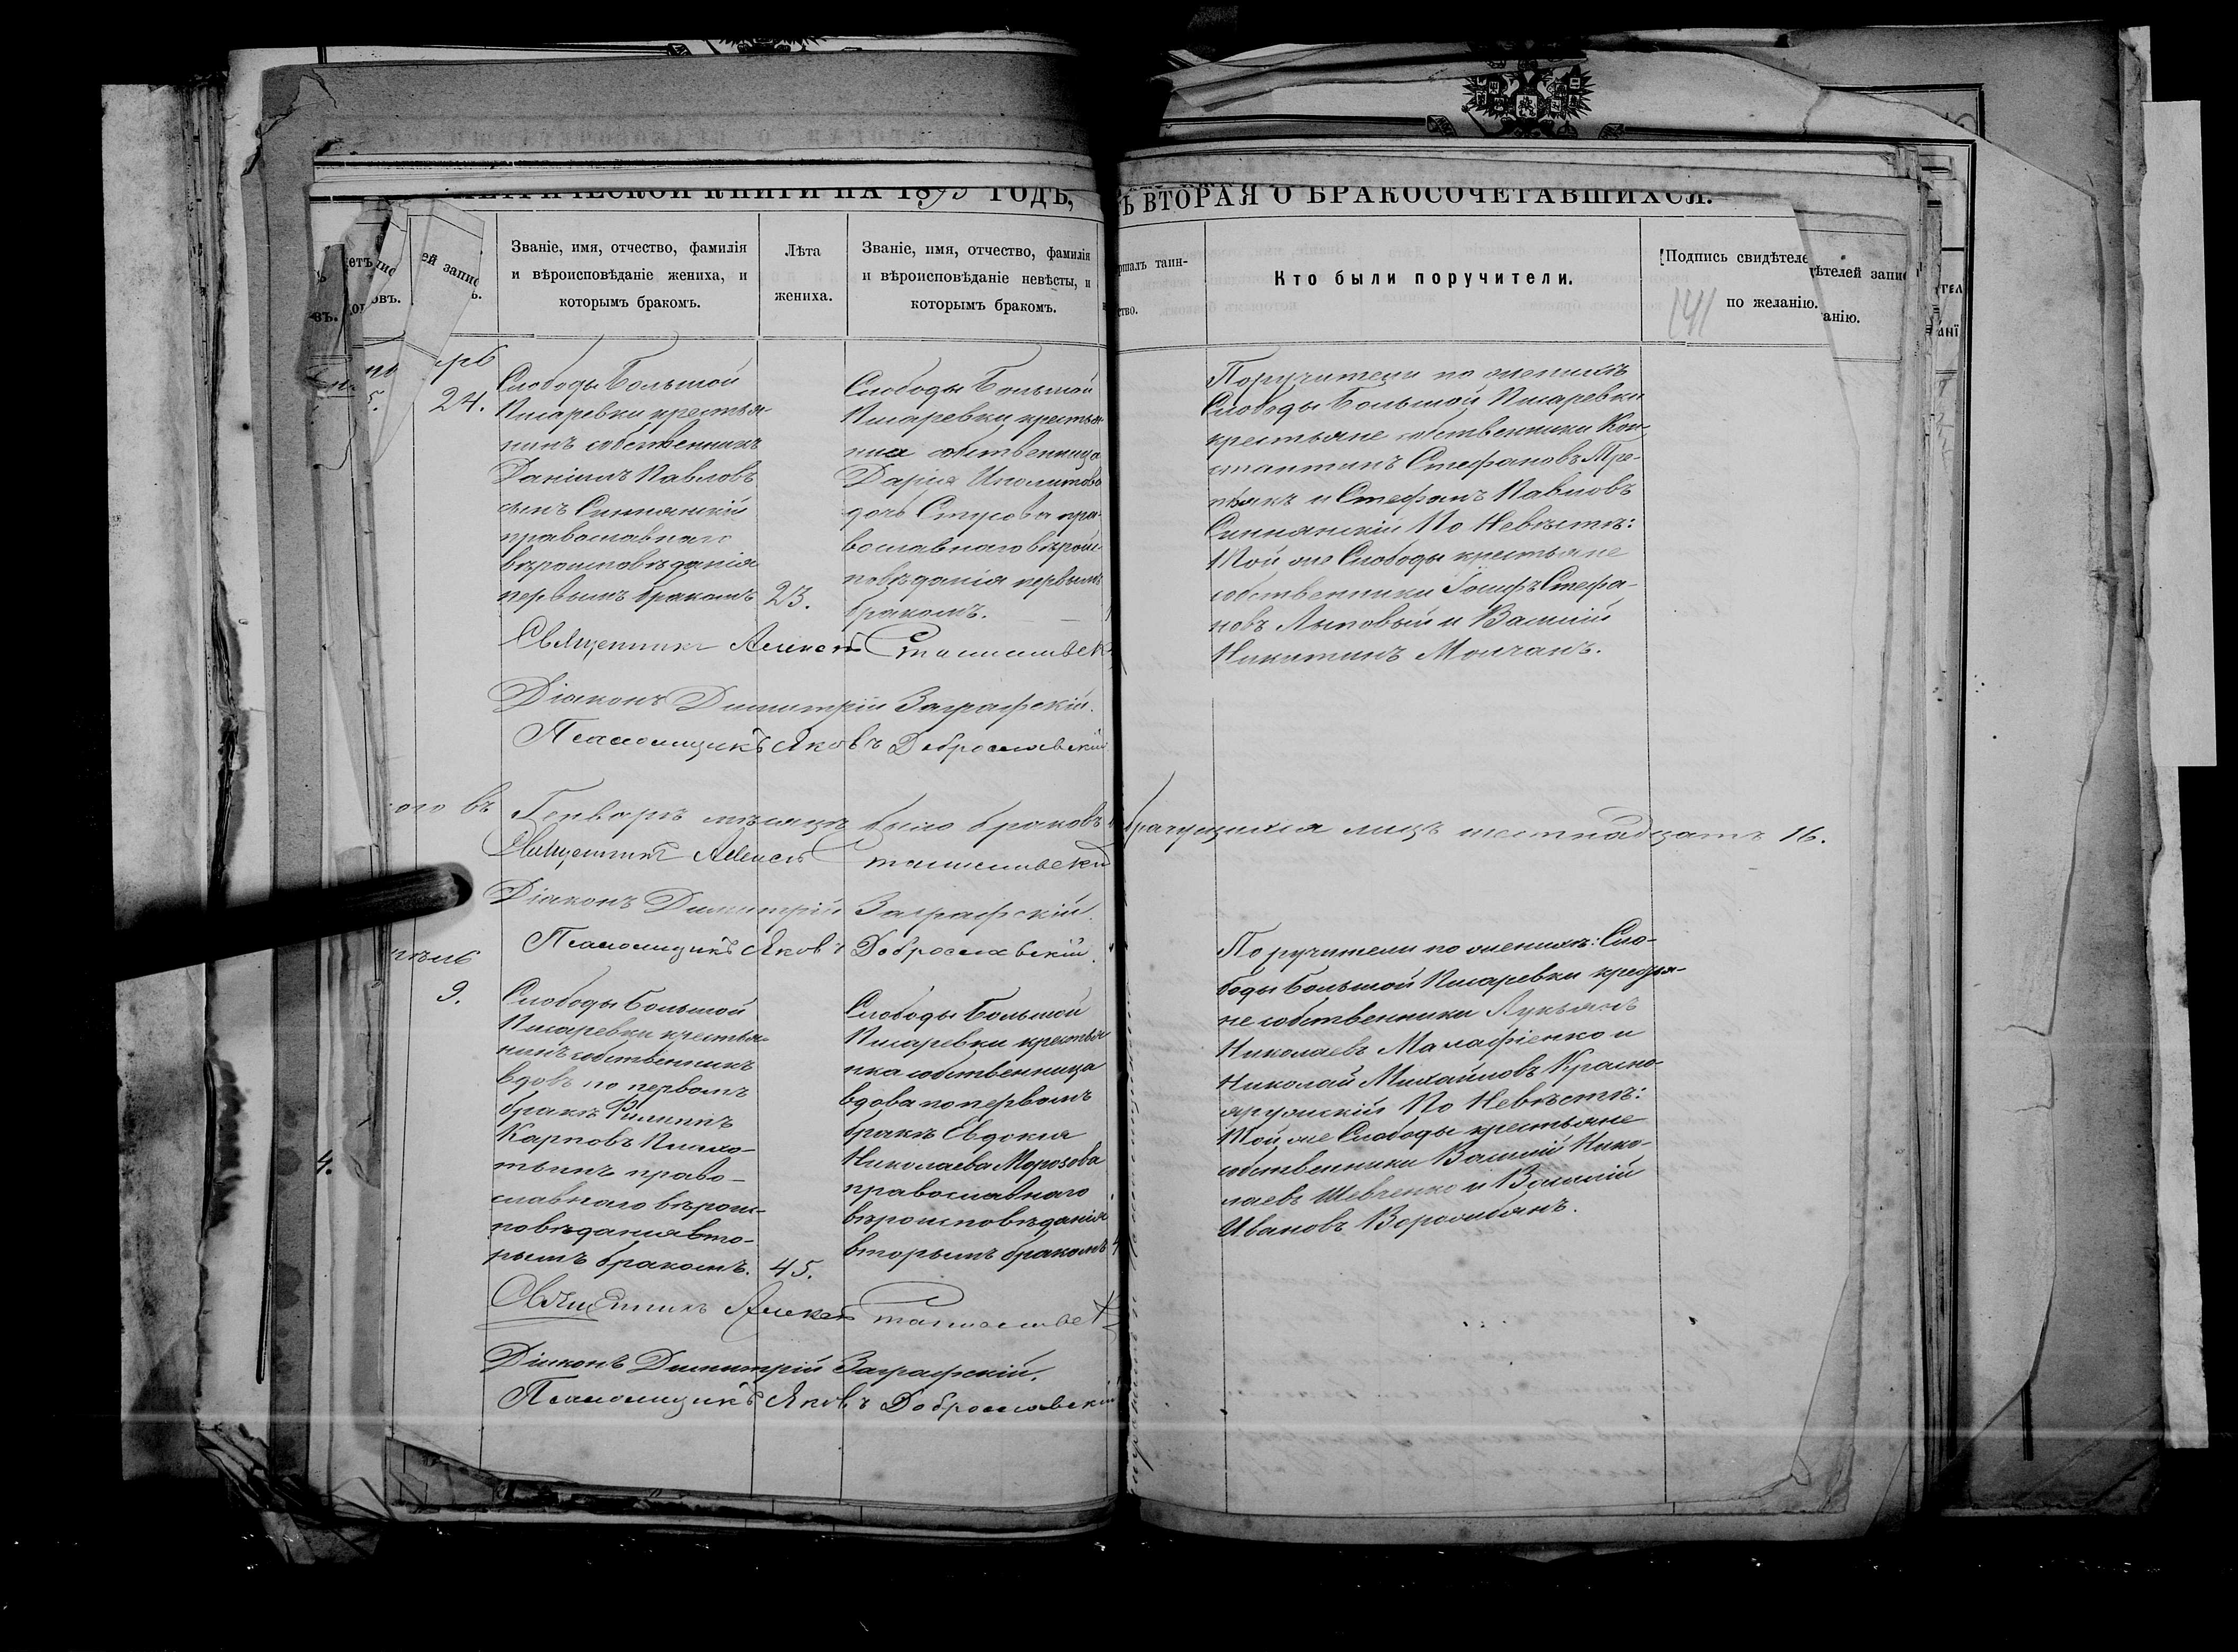 МЕТРИЧЕСКОЙ КНИГИ НА 1895 ГОДЪ,
Ъ ВТОРАЯ О БРАКОСОЧЕТАВШИХСЯ.
Званіе, имя, отчество, фамилія
и вѣроисповѣданіе жениха, и
которымъ бракомъ.
Лѣта
жениха.
Званіе, имя, отчество, фамилія
и вѣроисповѣданіе невѣсты, и
которымъ бракомъ.
Кто были поручители.
Подпись свидѣтеле
по желанію.
ѣтелей запис
анію.
141
24.
Слободы Большой
Писаревки крестья-
нинъ собственникъ
Даніилъ Павловъ
сынъ Синянскій
православнаго
вѣроисповѣданія
первымъ бракомъ
23.
Слободы Большой
Писаревки крестьян-
ка собственница
Дарія Иполитова
дочь Стусова пра-
вославнаго вѣроис-
повѣданія первымъ
бракомъ.
Поручители по женихѣ
Слободы Большой Писаревки
крестьяне собственники Кон-
стантинъ Стефановъ Тре-
тьякъ и Стефанъ Павловъ
Синянскій По Невѣстѣ:
Той же Слободы крестьяне
собственники Іосифъ Стефа-
новъ Лыповый и Василій
Никитинъ Молчанъ.
Священникъ Алексѣй
Діаконъ Димитрій Заграфскій.
Псаломщикъ Яковъ Доброславскій
въ Генварѣ мѣсяцѣ было браковъ
брачущихся лицъ шестнадцать 16.
Священникъ Алексѣй
Діаконъ Димитрій Заграфскій.
Псаломщикъ Яковъ Доброславскій.
9.
Слободы Большой
Писаревки крестья-
нинъ собственникъ
вдовъ по первомъ
бракѣ Филиппъ
Карповъ
право-
славнаго вѣроис-
повѣданія вто-
рымъ бракомъ.
45.
Слободы Большой
Писаревки крестьян-
ка собственница
вдова по первомъ
бракѣ Евдокія
Николаева Морозова
православнаго
вѣроисповѣданія
вторымъ бракомъ
Поручители по женихѣ: Сло-
боды Большой Писаревки крестья-
не собственники Лукьянъ
Николаевъ Малафіенко и
Николай Михайловъ Красно-
яружскій По Невѣстѣ:
Той же Слободы крестьяне
собственники Василій Нико-
лаевъ Шевченко и Василій
Ивановъ
4.
Священникъ Алексѣй
Діаконъ Димитрій Заграфскій.
Псаломщикъ Яковъ Доброславскій